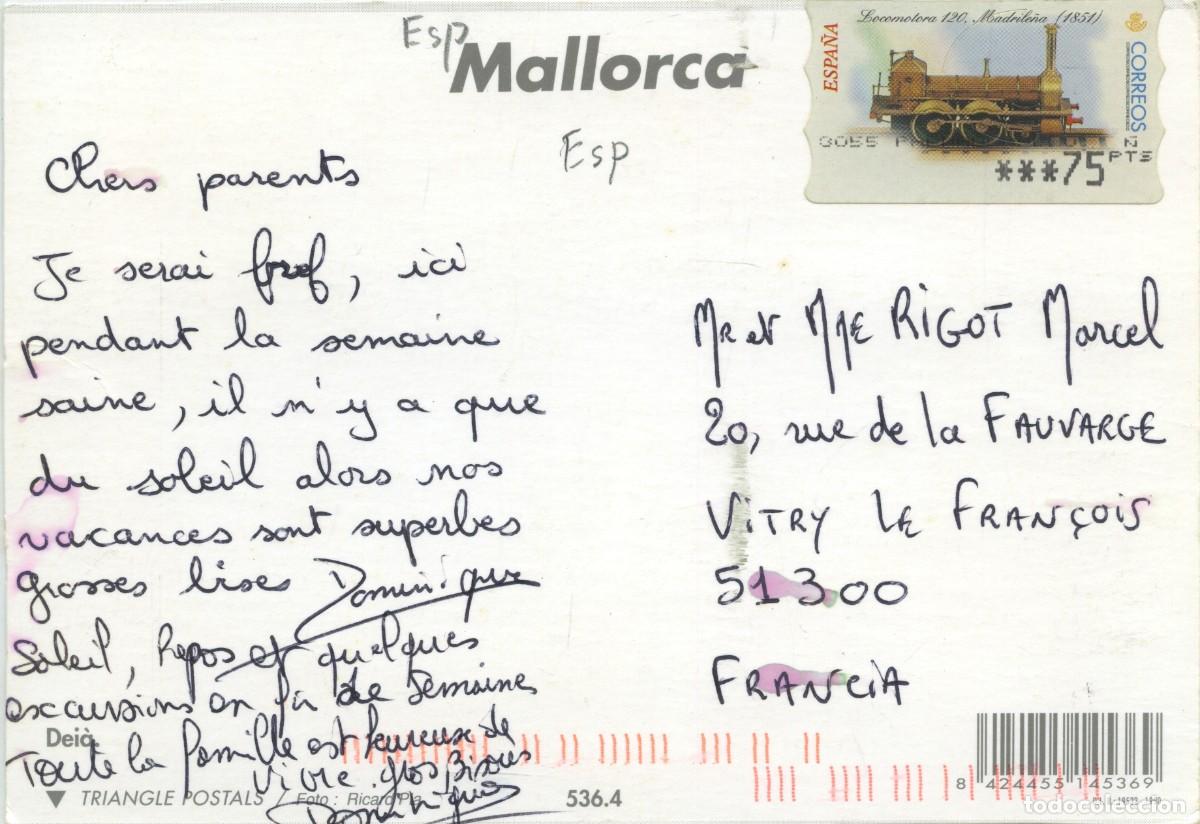 Esp
Mallorca
Esp
Locomotora 120. Madrileña (1851)
ESPAÑA
CORREOS
***75 PTS
Chers parents
Je serai bref, ici
pendant la semaine
saine, il n'y a que
du soleil alors nos
vacances sont superbes
grosses bises Dominique
Soleil, Repos et quelques
excursions en fin de semaines
Toute la famille est heureuse de
vivre gros bisous
Dominique
Mr et MME RIGOT Marcel
20, rue de la FAUVARGE
VITRY LE FRANÇOIS
51300
FRANCIA
Deià
TRIANGLE POSTALS / Foto : Ricard Pla
536.4
8 424455 145369
todocoleccion